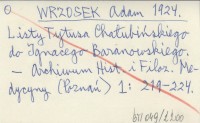 WRZOSEK Adam 1924.
Listy Tytusa Chałubińskiego
do Ignacego Baranowskiego.
– Archiwum Hist. i Filoz. Me-
dycyny (Poznań) 1: 219-224.